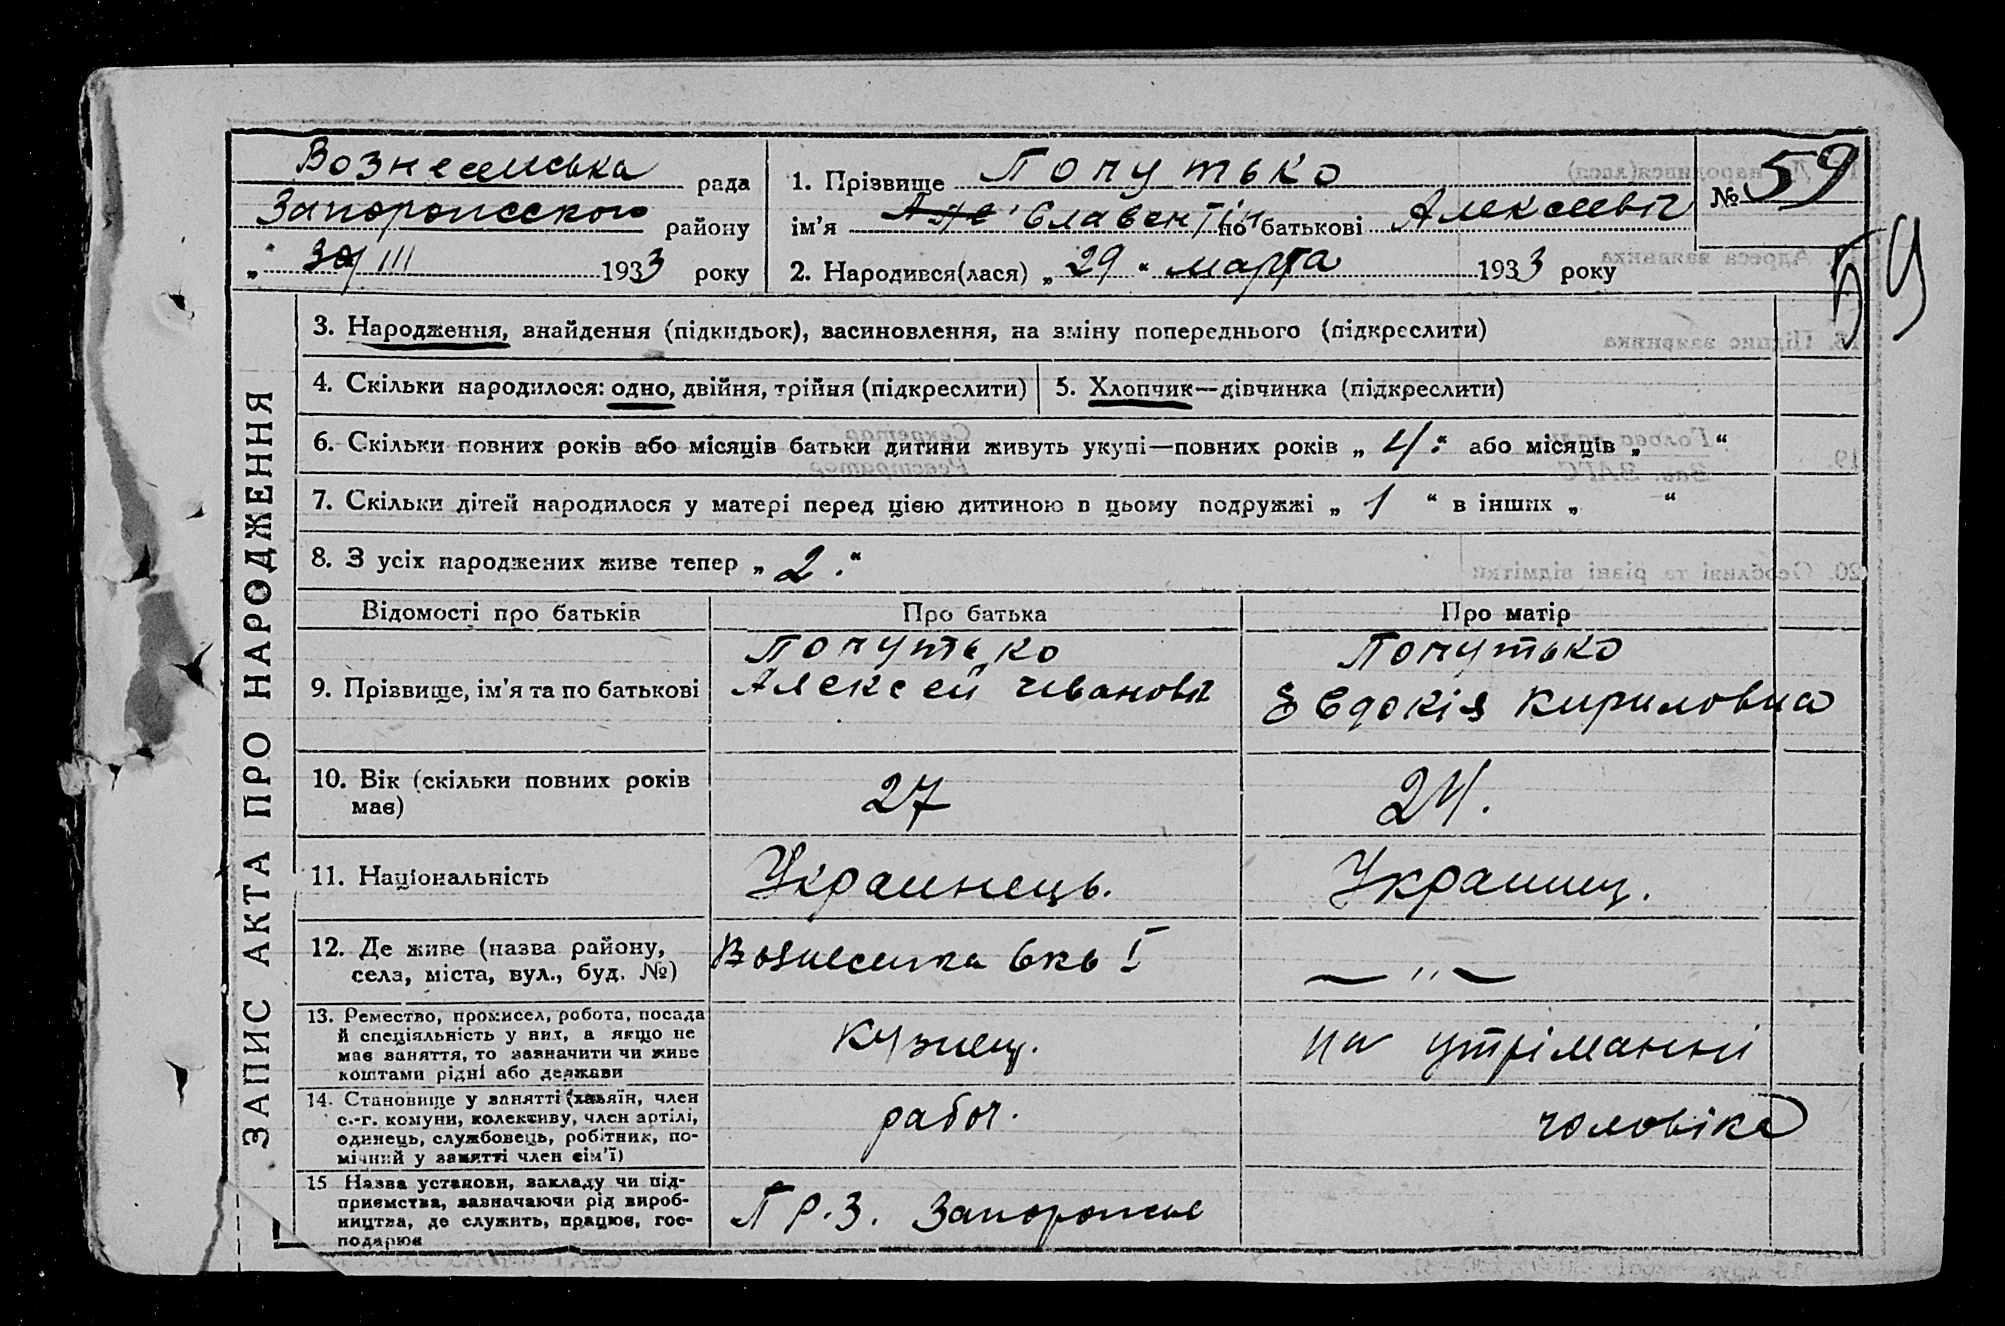 Вознесенська рада
Запорожского району
„ 30/III 1933 року
1. Прізвище Попутько
ім’я Славентін по батькові Алексеевіч
2. Народився(лася) „ 29 “ марта 1933 року
№ 59
59
ЗАПИС АКТА ПРО НАРОДЖЕННЯ
3. Народження, знайдення (підкидьок), засиновлення, на зміну попереднього (підкреслити)
4. Скільки народилося: одно, двійня, трійня (підкреслити)
5. Хлопчик—дівчинка (підкреслити)
6. Скільки повних років або місяців батьки дитини живуть укупі—повних років „ 4 “ або місяців „ “
7. Скільки дітей народилося у матері перед цією дитиною в цьому подружжі „ 1 “ в інших „ “
8. З усіх народжених живе тепер „ 2 “
Відомості про батьків
Про батька
Про матір
9. Прізвище, ім’я та по батькові
Попутько
Алексей Іванович
Попутько
Евдокія Кириловна
10. Вік (скільки повних років
має)
27
24.
11. Національність
Украинець.
Украинец.
12. Де живе (назва району,
села, міста, вул., буд. №)
Вознесенка I
— " —
13. Ремество, промисел, робота, посада
й спеціяльність у них, а якщо не
має заняття, то зазначити чи живе
коштами рідні або держави
кузнец.
на утріманні
14. Становище у занятті (хазяїн, член
с.-г. комуни, колективу, член артілі,
одинець, службовець, робітник, по-
мічний у занятті член сім’ї)
рабоч.
чоловіка
15 Назва установи, закладу чи під-
приємства, зазначаючи рід вироб-
ництва, де служить, працює, гос-
подарює
П Р. З. Запорожье